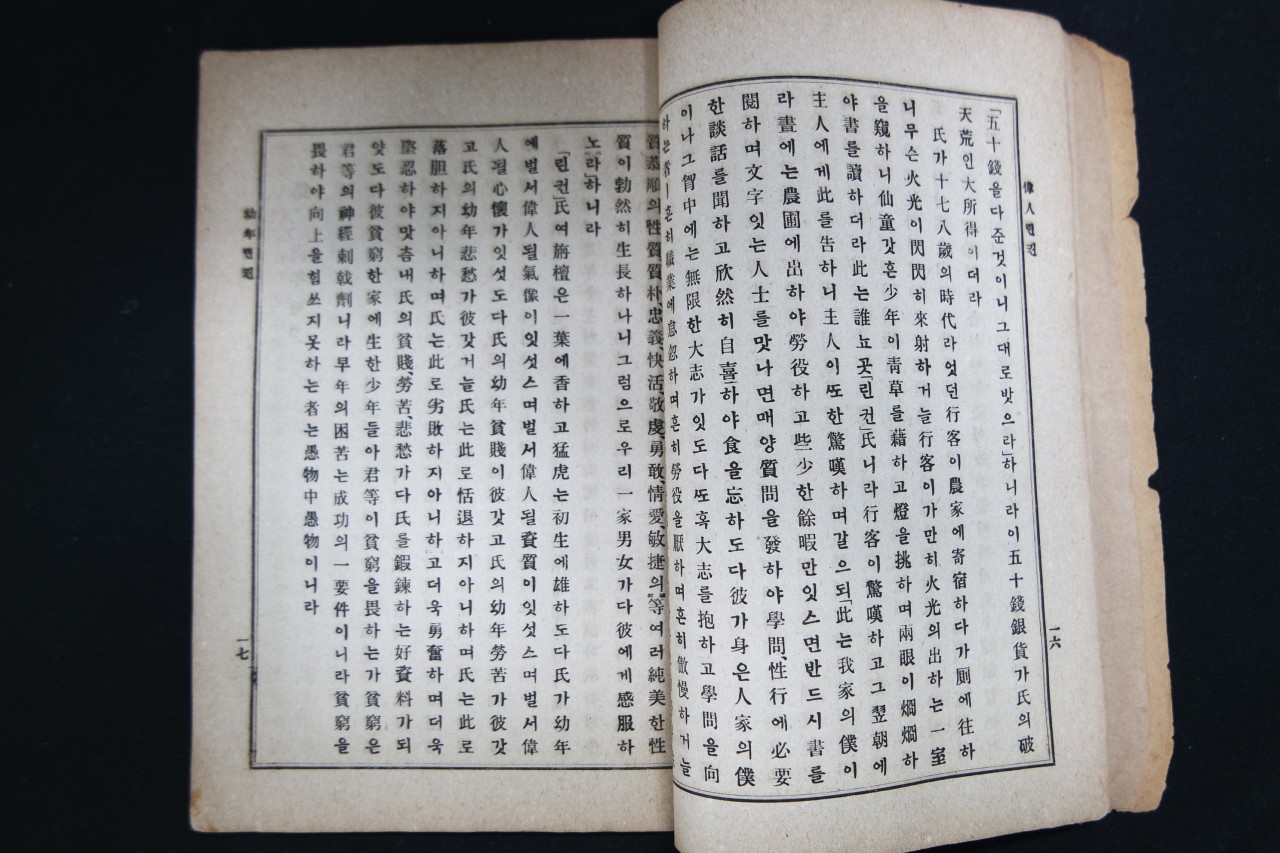 偉人린컨
「五十錢을다준것이니그대로밧으라」하니라이五十錢銀貨가氏의破
天荒인大所得이더라
氏가十七八歲의時代라엇던行客이農家에寄宿하다가厠에往하
니무슨火光이閃閃히來射하거늘行客이가만히火光의出하는一室
을窺하니仙童갓흔少年이靑草를藉하고燈을挑하며兩眼이烱烱하
야書를讀하더라此는誰뇨곳「린컨」氏니라行客이驚嘆하고그翌朝에
主人에게此를告하니主人이또한驚嘆하며갈으되「此는我家의僕이
라晝에는農圃에出하야勞役하고些少한餘暇만잇스면반드시書를
閱하며文字잇는人士를맛나면매양質問을發하야學問、性行에必要
한談話를聞하고欣然히自喜하야食을忘하도다彼가身은人家의僕
이나그胷中에는無限한大志가잇도다또혹大志를抱하고學問을向
하는者ㅣ흔히職業에怠忽하며흔히勞役을厭하며흔히傲慢하거늘
一六
質、恭順의性質、質朴、忠義、快活、敬虔、勇敢、情愛、敏捷의等여러純美한性
質이勃然히生長하나니그럼으로우리一家男女가다彼에게感服하
노라」하니라
「린컨」氏여旃檀은一葉에香하고猛虎는初生에雄하도다氏가幼年
에벌서偉人될氣像이잇섯스며벌서偉人될資質이잇섯스며벌서偉
人될心懷가잇섯도다氏의幼年貧賤이彼갓고氏의幼年勞苦가彼갓
고氏의幼年悲愁가彼갓거늘氏는此로恬退하지아니하며氏는此로
落胆하지아니하며氏는此로劣敗하지아니하고더욱勇奮하며더욱
堅忍하야맛츰내氏의貧賤、勞苦、悲愁가다氏를鍜鍊하는好資料가되
얏도다彼貧窮한家에生한少年들아君等이貧窮을畏하는가貧窮은
君等의神經刺戟劑니라早年의困苦는成功의一要件이니라貧窮을
畏하야向上을힘쓰지못하는者는愚物中愚物이니라
幼年린컨
一七